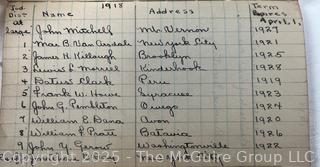 Jud. Name 1918 Address Term
Dist Expires
at April 1,
Large John Mitchell Mt. Vernon 1927
1 Mac B. Van Arsdale New York City 1921
2 James H. Killough Brooklyn 1925
3 Lewis E. Morrell Kinderhook 1928
4 Patrick Clark Peru 1919
5 Frank W. Howe Syracuse 1923
6 John G. Pembleton Owego 1924
7 William E. Dana Avon 1920
8 William T. Pratt Batavia 1926
9 John Y. Gerow Washingtonville 1922
© Copyright 2025 - The McGuire Group LLC